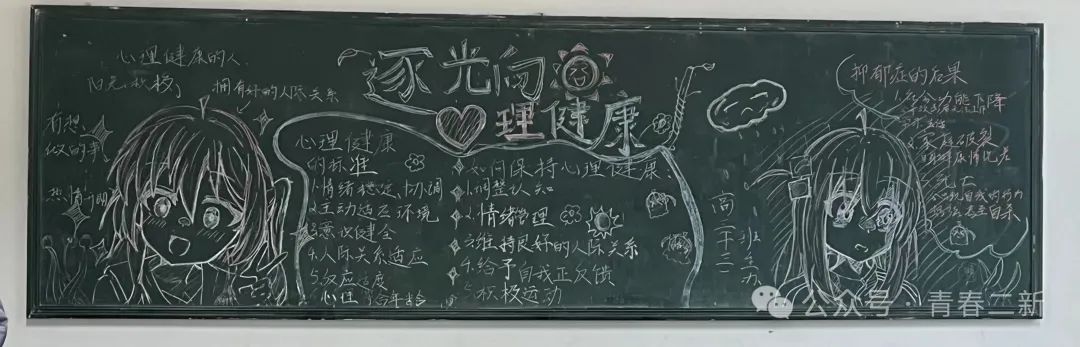 心理健康的人
阳光积极
拥有好的人际关系
有想
做的事
热情开朗
逐光向
理健康
心理健康
的标准
1.情绪稳定、协调
2.主动适应环境
3.意识健全
4.人际关系适应
5.反应适度
心理 合年龄
如何保持心理健康
1.调整认知
2.情绪管理
3.维持良好的人际关系
4.给予自我正反馈
5.积极运动
高二十三班 宣
抑郁症的后果
1.社会功能下降
2.家庭破裂
3.死亡
自杀
公众号·青春二新